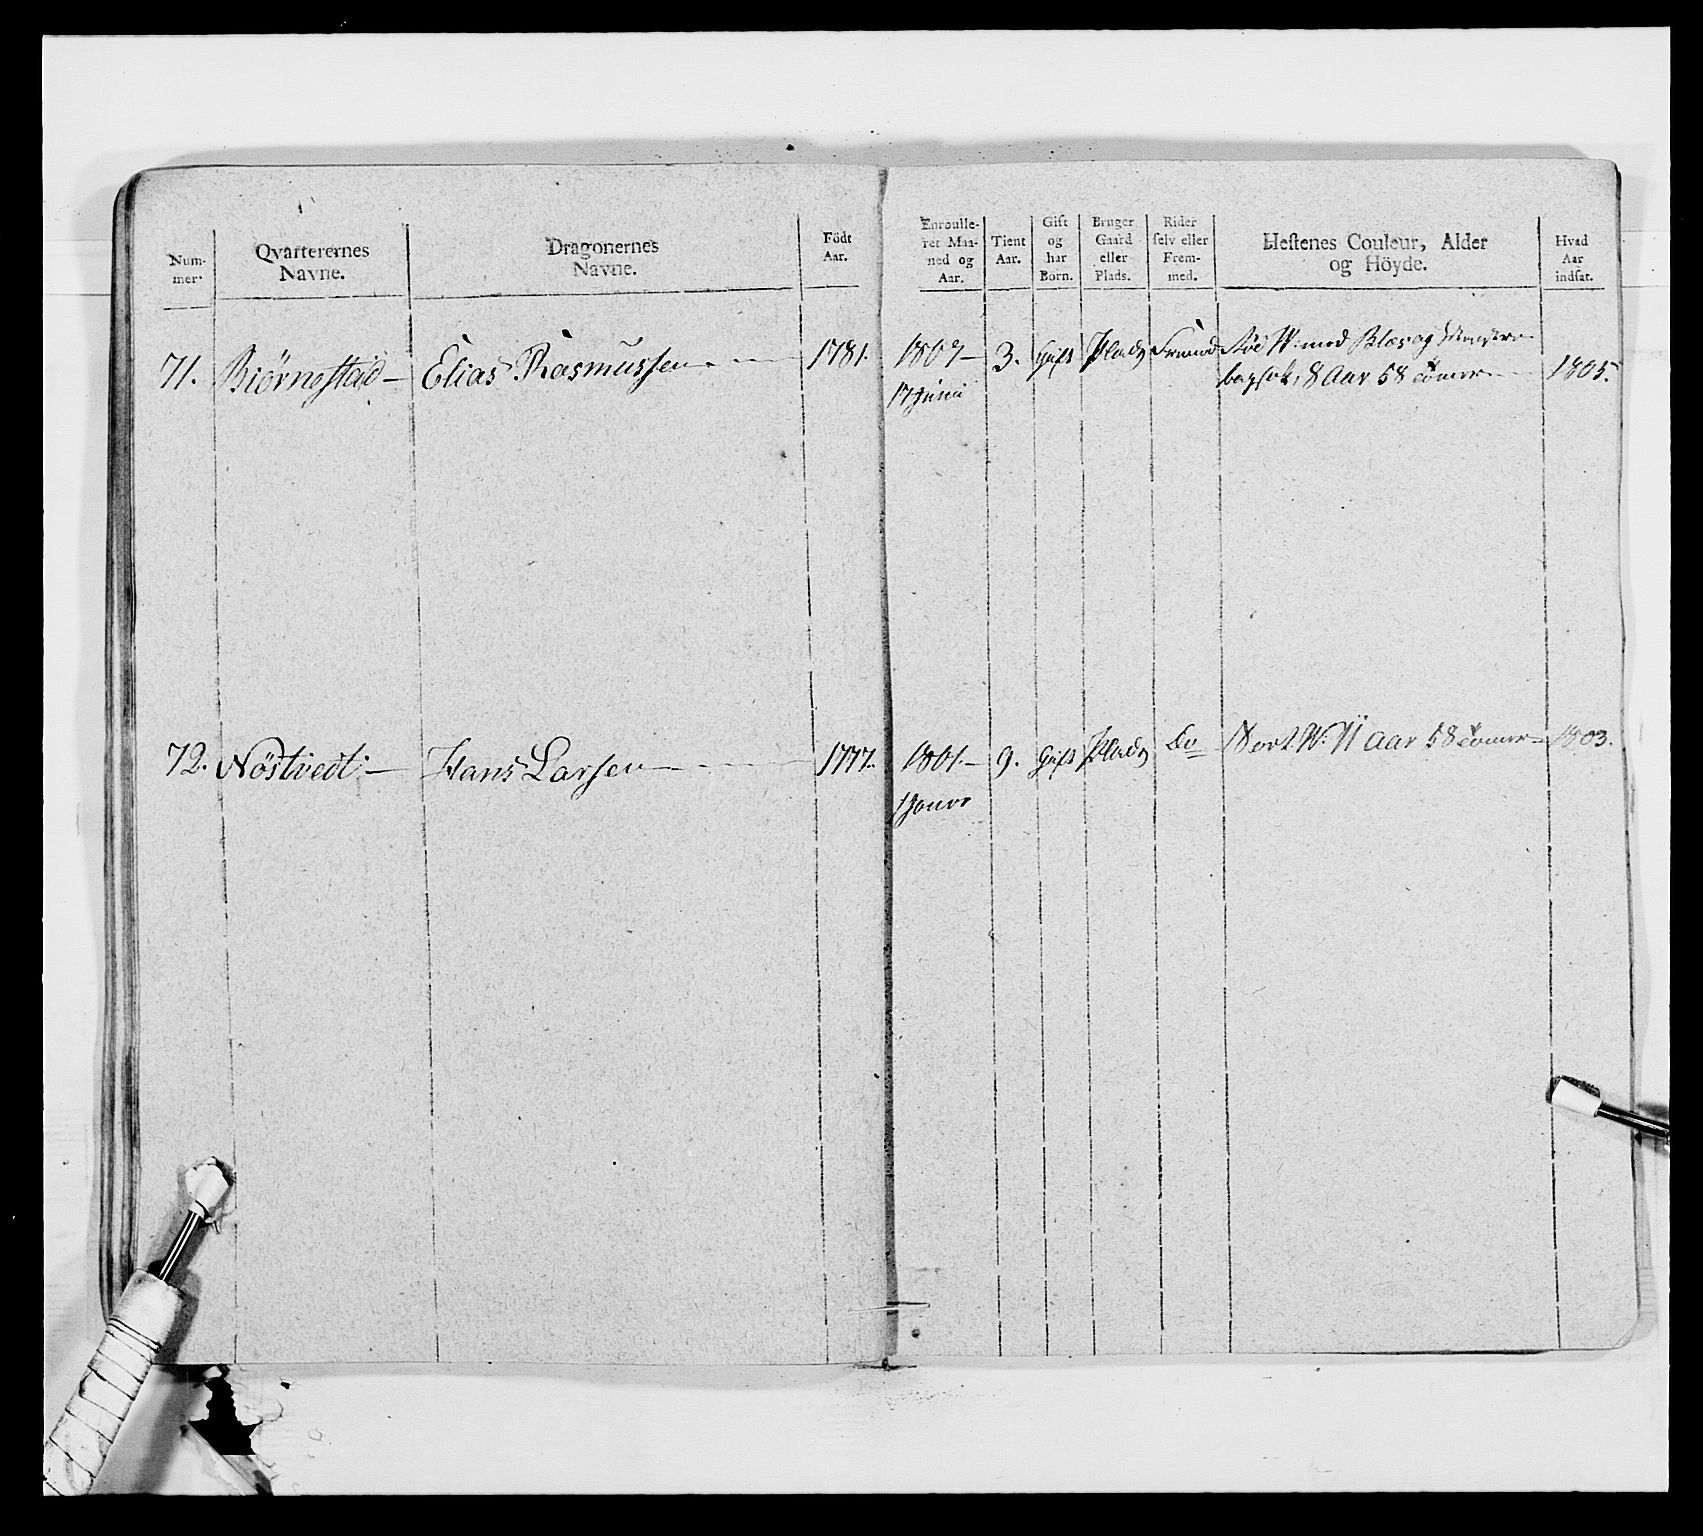 Num-
mer.
Qvarterernes
Navne.
Dragonernes
Navne.
Födt
Aar.
Enroulle-
ret Maa-
ned og
Aar.
Tient
Aar.
Gift
og
har
Börn.
Bruger
Gaard
eller
Plads.
Rider
selv eller
Frem-
med.
Hestenes Couleur, Alder
og Höyde.
Hvad
Aar
indsat.
71. Biörnestad — Elias Rasmussen 1781. 1807 — 3. Gift Plads Fremed Röd W. med Blæs og
17 Juni 8 Aar 58 tomer 1805.
72. Nöstvedt — Hans Larsen 1777. 1801. — 9. Gift Plads Do Sort W. 11 Aar 58 tomer 1803.
1 Janvr